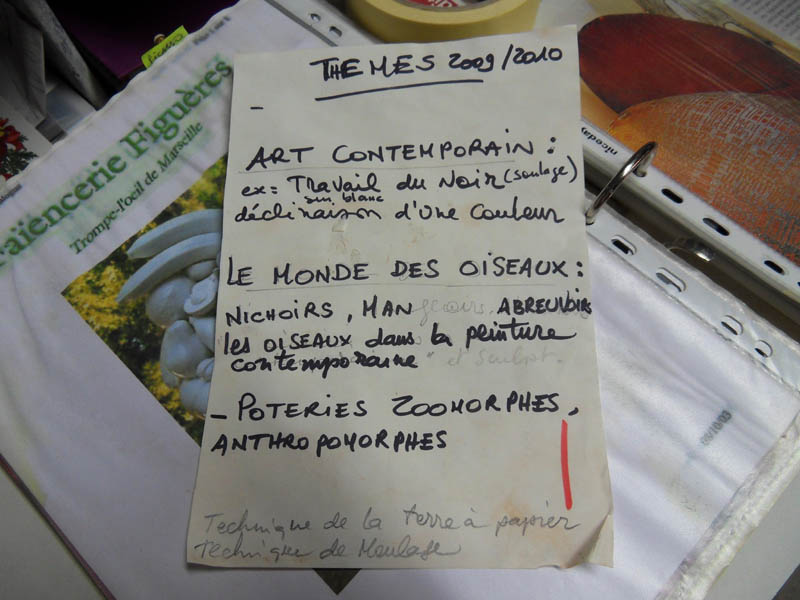 THEMES 2009/2010
ART CONTEMPORAIN :
ex= TRavail du Noir (soulage)
sur blanc
déclinaison d'une Couleur
LE MONDE DES OISEAUX :
NICHOIRS, MANgeoirs, ABREUVOIRS
les OISEAUX dans la peinture
contemporaine" et Sculpt.
- POTERIES ZOOMORPHES,
ANTHROPOMORPHES
Technique de la terre à papier
technique de Moulage
Faïencerie Figuères
Trompe-l'oeil de Marseille